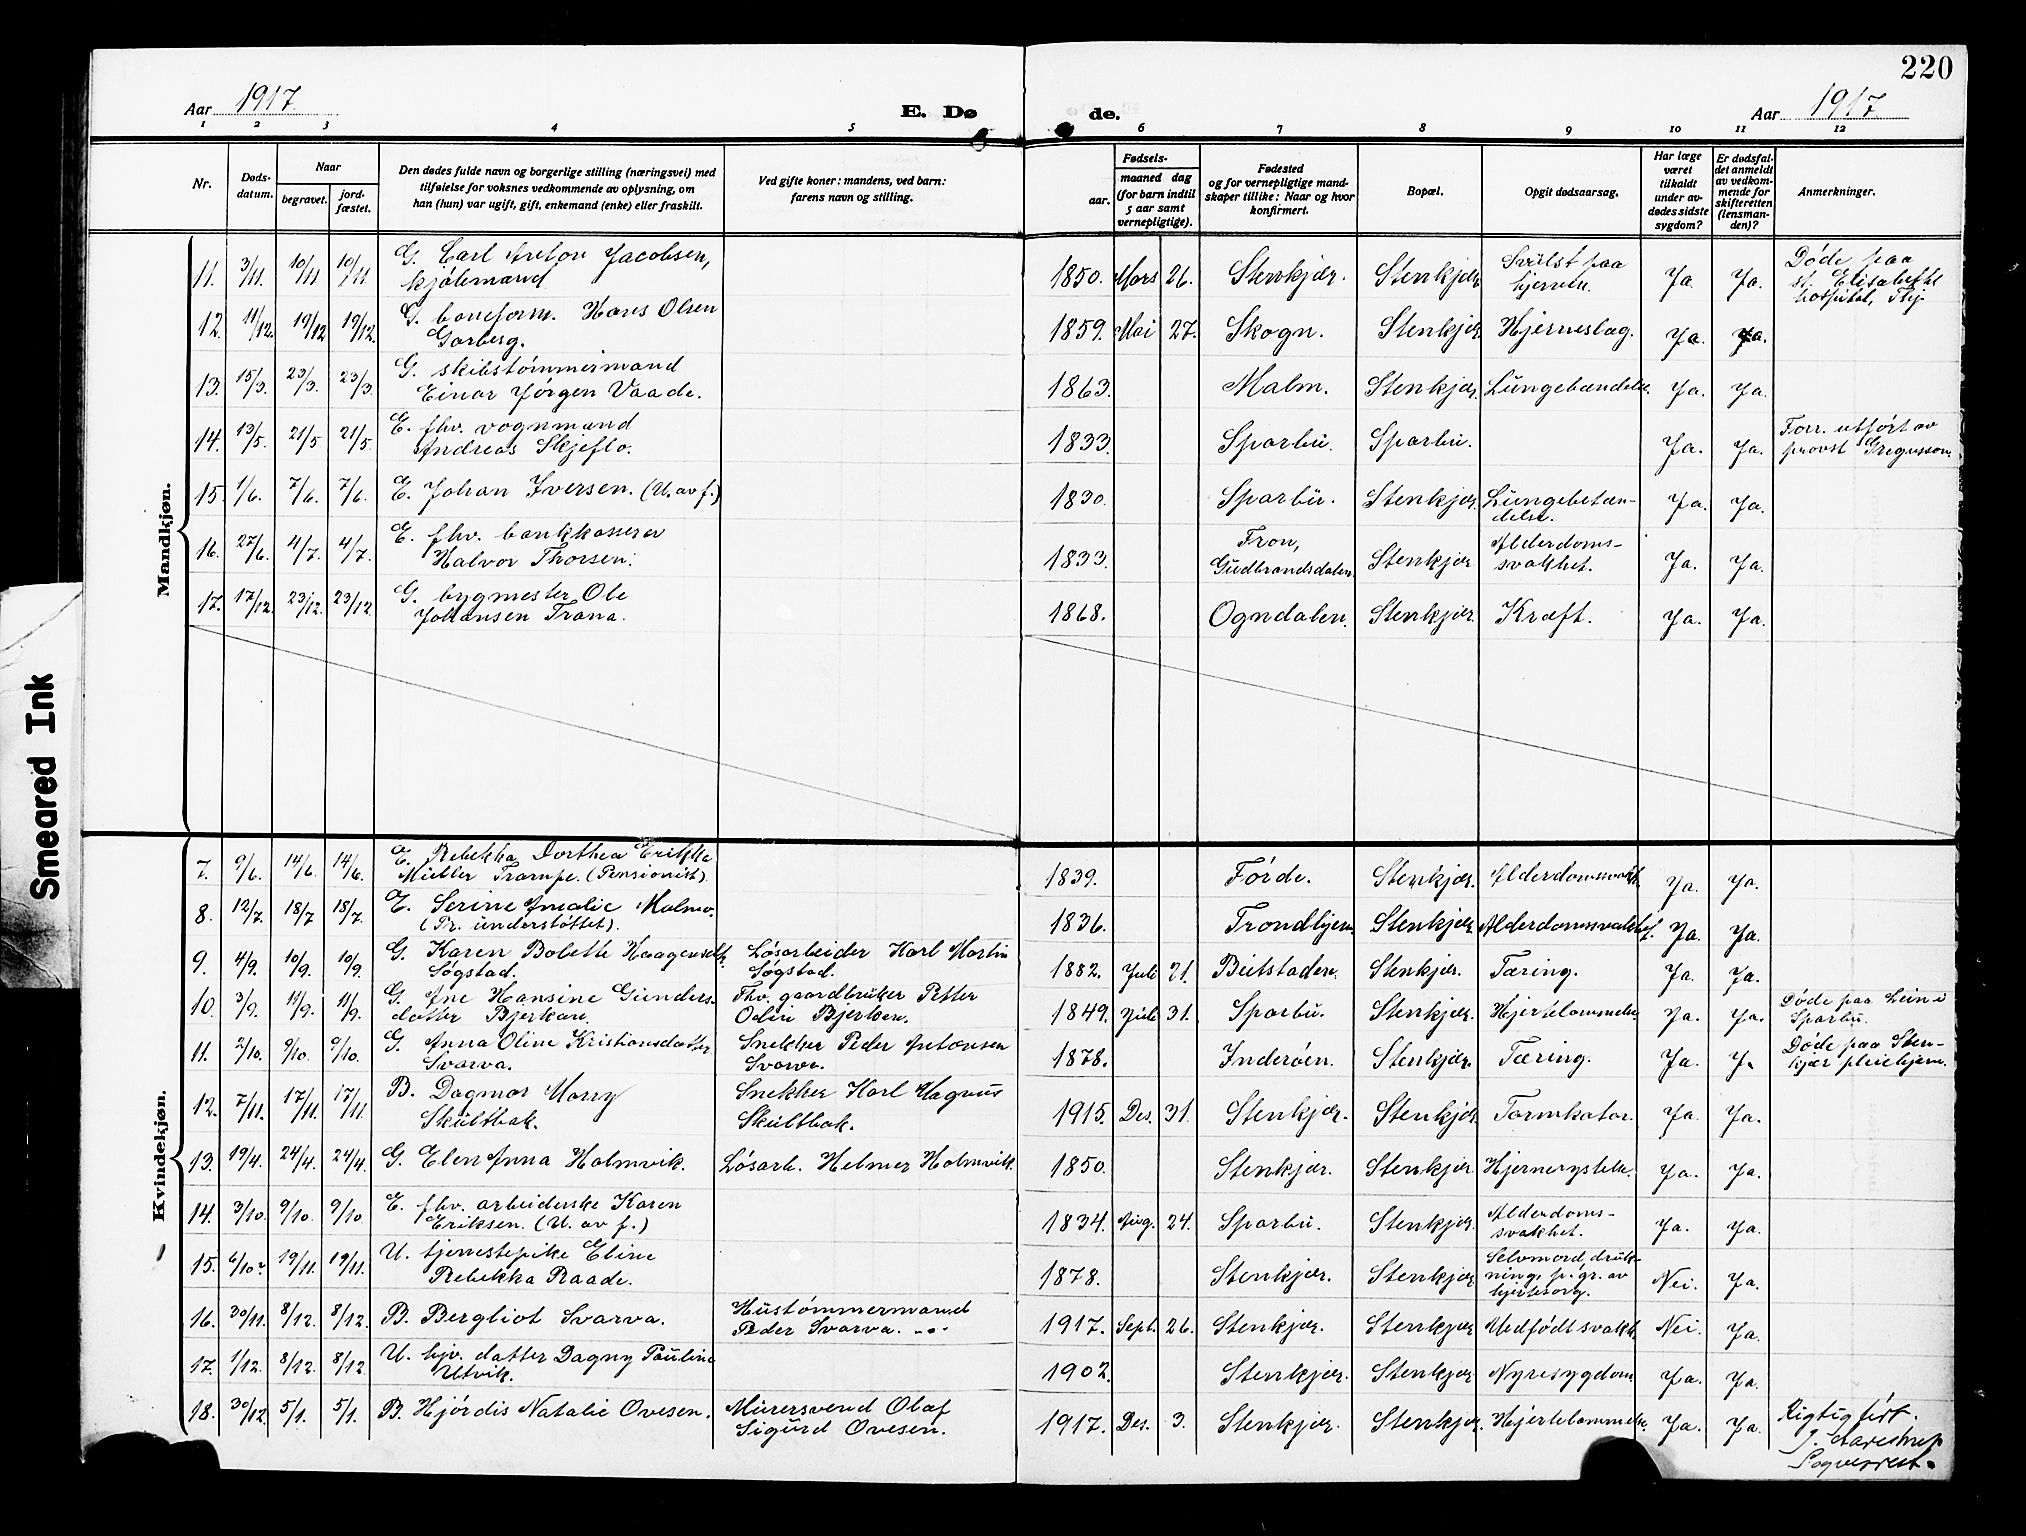 220
Aar 1917.
E. Dø
de.
Aar 1917
1 2 3 4 5 6 7 8 9 10 11 12
Nr.
Døds-
datum.
Naar
begravet.
jord-
fæstet.
Den dødes fulde navn og borgerlige stilling (næringsvei) med
tilføielse for voksnes vedkommende av oplysning, om
han (hun) var ugift, gift, enkemand (enke) eller fraskilt.
Ved gifte koner: mandens, ved barn:
farens navn og stilling.
Fødsels-
aar.
maaned dag
(for barn indtil
5 aar samt
vernepligtige).
Fødested
og for vernepligtige mand-
skaper tillike: Naar og hvor
konfirmert.
Bopæl.
Opgit dødsaarsag.
Har læge
været
tilkaldt
under av-
dødes sidste
sygdom?
Er dødsfal-
det anmeldt
av vedkom-
mende for
skifteretten
(lensman-
den)?
Anmerkninger.
Mandkjøn.
11. 3/11. 10/11 10/11 G. Carl Anton Jacobsen, 1850. Mars 26. Stenkjær. Stenkjær Svülst paa Ja. Ja. Døde paa
kjølemand hjernen. st. Elisabeths
hospital, Thj.
12. 11/12. 19/12 19/12. G. Hans Olsen 1859. Mai 27. Skogn. Stenkjær. Hjerneslag. Ja. Ja.
Garberg.
13. 15/3. 23/3. 23/3 G. skibstømmermand 1863. Malm. Stenkjær. Lüngebændelse. Ja. Ja.
Einar Jørgen Vaade.
14. 13/5. 21/5 21/5 E. fhv. vognmand 1833. Sparbü. Sparbü. Ja. Ja. Forr. utført av
Andreas Skjeflo. provst Gregusson.
15. 1/6. 7/6. 7/6. E. Johan Iversen. (U. av f.) 1830. Sparbü. Stenkjær. Lüngebetæn- Ja. Ja.
delse.
16. 27/6. 4/7. 4/7. E. fhv. bankkasserer 1833. Fron, Stenkjær Alderdoms- Ja. Ja.
Halvor Thorsen. Güdbrandsdalen. svakhet.
17. 17/12. 23/12. 23/12. G. bygmester Ole 1868. Ogndalen. Stenkjær. Kræft. Ja. Ja.
Johansen Trana.
Kvindekjøn.
7. 9/6. 14/6. 14/6. E. Rebekka Dorthea Erikka 1839. Førde. Stenkjær. Alderdomssvakh. Ja. Ja.
Müller Trampe. (Pensionist).
8. 12/7. 18/7 18/7. E. Serine Amalie Malmo. 1836. Trondhjem Stenkjær. Alderdomssvakhet. Ja. Ja.
(Pr. ünderstøttet).
9. 4/9. 10/9. 10/9. G. Karen Bolette Haagensdt. Løsarbeider Karl Martin 1882. Juli 21. Beitstaden. Stenkjær. Tæring. Ja. Ja.
Søgstad. Søgstad.
10. 3/9. 11/9. 11/9. G. Ane Hansine Günders- Fhv. gaardbrüker Petter 1849. Jüli 31. Sparbü. Stenkjær. Hjertelammelse. Ja. Ja. Døde paa Lein i
datter Bjerkan. Odin Bjerken. Sparbü.
11. 2/10. 9/10. 9/10. G. Anna Oline Kristiansdatter Snekker Peder Antonsen 1878. Inderøen. Stenkjær. Tæring. Ja. Døde paa Sten-
Svarva. Svarva. kjær pleiehjem.
12. 7/11. 17/11. 17/11. B. Dagmar Marry Snekker Karl Magnüs 1915. Des. 31. Stenkjær. Stenkjær. Tarmkatar. Ja. Ja.
Skültbak. Skültbak.
13. 19/4. 24/4. 24/4. G. Elen Anna Holmvik. Løsarb. Helmer Holmvik. 1850. Stenkjær. Stenkjær. Hjernerystelse. Ja. Ja.
14. 3/10. 9/10. 9/10. E. fhv. arbeiderske Karen 1834. Aüg. 24. Sparbü. Stenkjær. Alderdoms- Ja. Ja.
Eriksen. (U. av f.) svakhet.
15. 6/10? 19/11. 19/11. U. tjenestepike Eline 1878. Stenkjær. Stenkjær. Selvmord, drük- Nei. Ja.
Rebekka Raade. ning, p. gr. av
hjertesorg.
16. 30/11. 8/12. 8/12. B. Bergliot Svarva. Hüstømmermand 1917. Sept. 26. Stenkjær. Stenkjær Medfødt svakh. Nei. Ja.
Peder Svarva.
17. 1/12. 8/12. 8/12. U. hjv. datter Dagny Paüline 1902. Stenkjær. Stenkjær. Nyresygdom. Ja. Ja.
Utvik.
18. 30/12. 5/1. 5/1. B. Hjørdis Natalie Ovesen. Mürersvend Olaf 1917. Des. 3. Stenkjær. Stenkjær. Hjertelammelse. Ja. Ja. Rigtig ført.
Sigürd Ovesen. J. Aarestrup
Sogneprest.
Smeared Ink